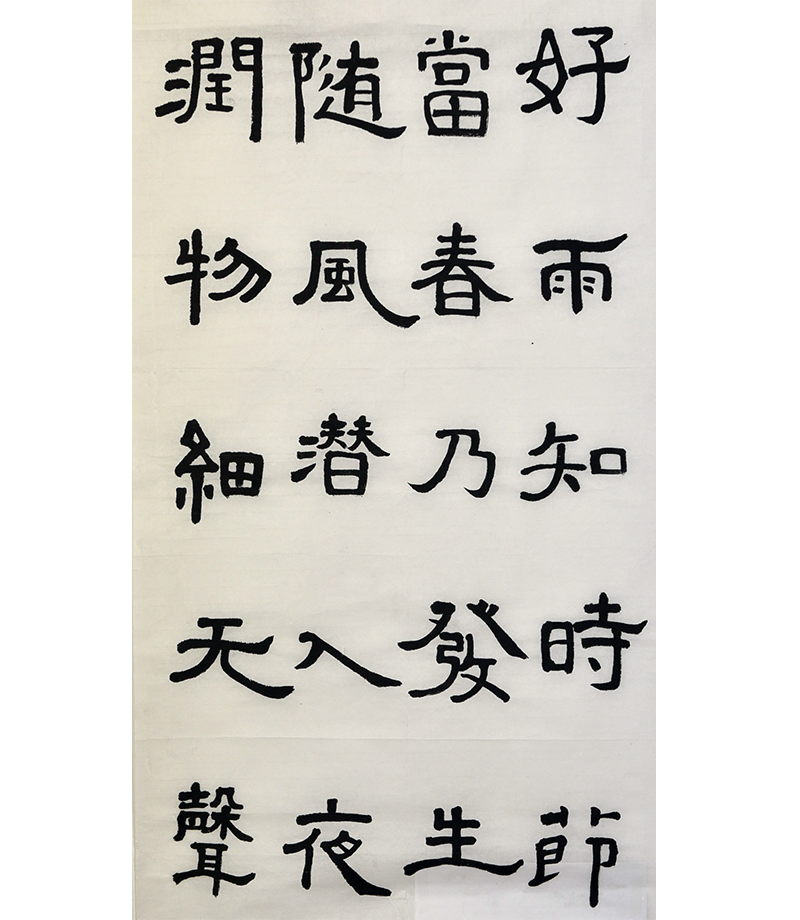 好雨知時節
當春乃發生
随風潜入夜
潤物細无聲